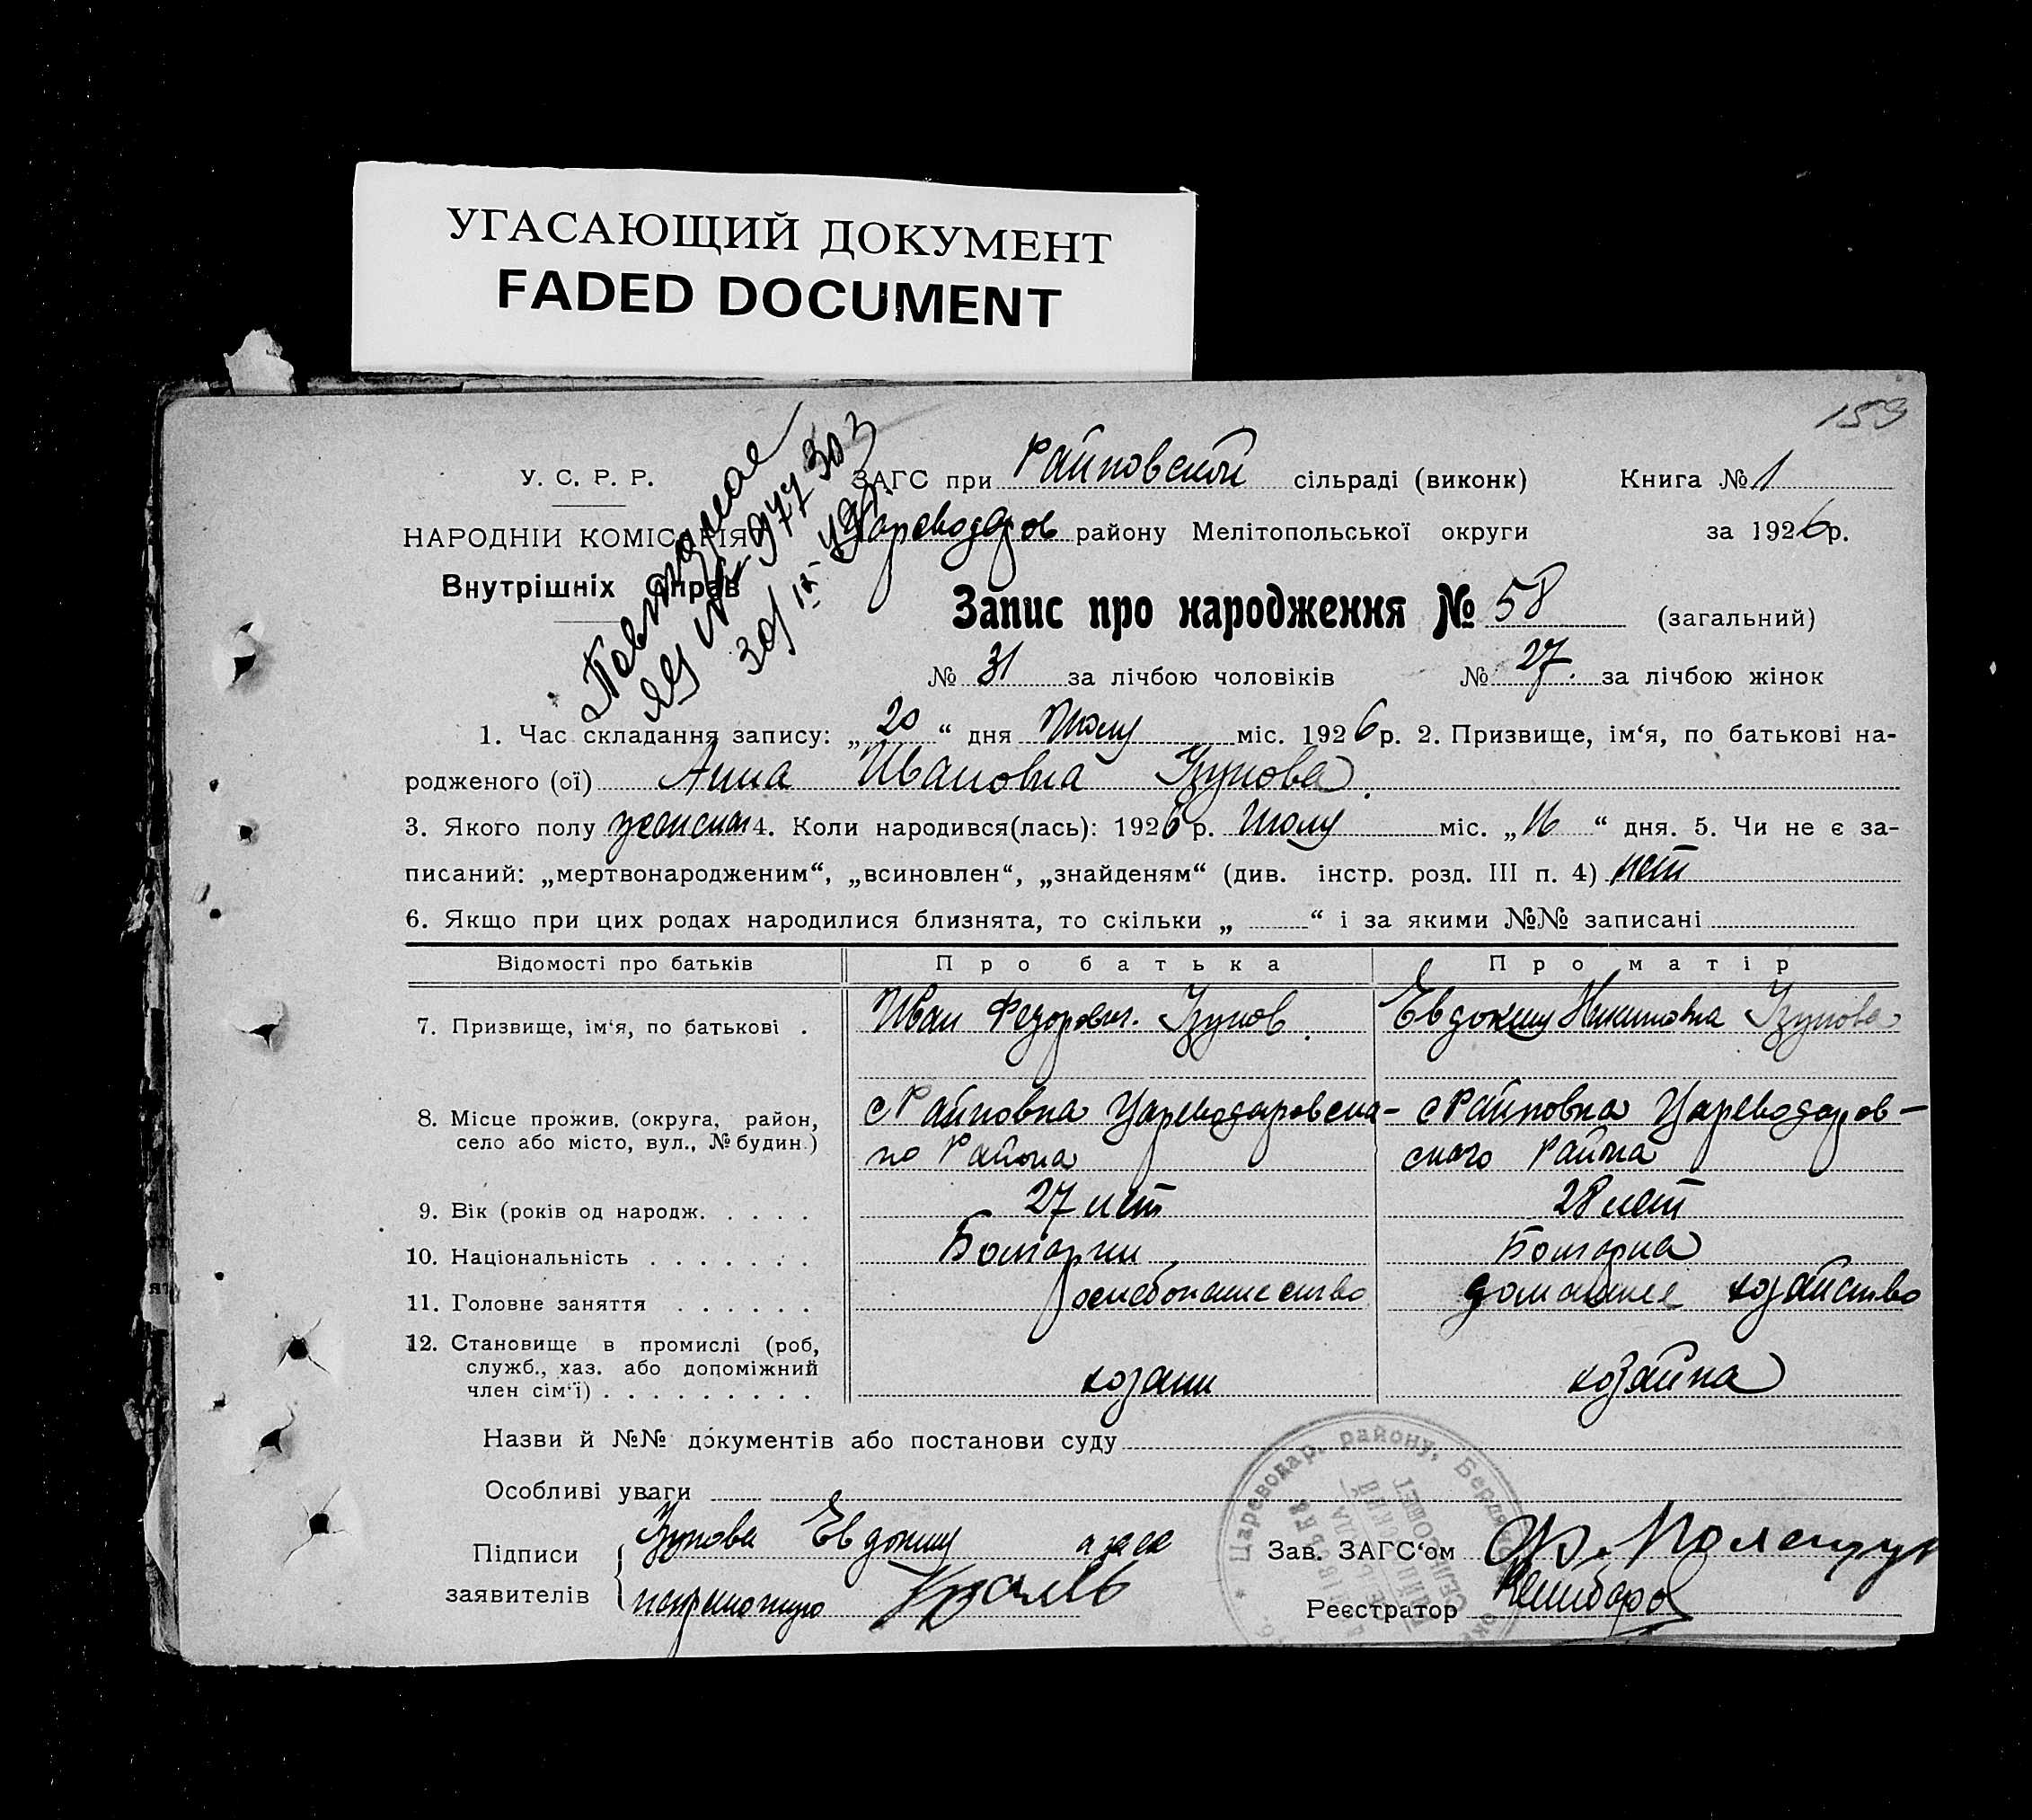 УГАСАЮЩИЙ ДОКУМЕНТ
FADED DOCUMENT
159
У. С. Р. Р.
НАРОДНІЙ КОМІСАРІЯТ
Внутрішніх Справ
Повторное
ЯЦ № 977303
ЗАГС при Райновской сільраді (виконк) Книга № 1
Цареводаров району Мелітопольської округи за 1926р.
Запис про народження № 58 (загальний)
№ 31 за лічбою чоловіків № 27. за лічбою жінок
1. Час складання запису: „20“ дня Июля міс. 1926р. 2. Призвище, ім‘я, по батькові на-
родженого (ої) Анна Ивановна Узунова.
3. Якого полу женской 4. Коли народився(лась): 1926р. Июля міс. „16“ дня. 5. Чи не є за-
писаний: „мертвонародженим“, „всиновлен“, „знайденям“ (див. інстр. розд. III п. 4) нет
6. Якщо при цих родах народилися близнята, то скільки „ “ і за якими №№ записані
Відомості про батьків Про батька Про матір
7. Призвище, ім‘я, по батькові . Иван Федорович. Узунов. Евдокия Никитовна Узунова
8. Місце прожив. (округа, район, с Райновка Цареводаровска- с Райновка Цареводаров-
село або місто, вул., № будин.) го Района ского Района
9. Вік (років од народж. . . . . 27 лет 28 лет
10. Національність . . . . . . . Болгарин Болгарка
11. Головне заняття . . . . . . хлебопашество домашнее хозяйство
12. Становище в промислі (роб,
служб., хаз. або допоміжний хозяин хозяйка
член сім‘ї) . . . . . . . . .
Назви й №№ документів або постанови суду
Особливі уваги
Цареводар. району, Бердянської
Підписи Узунова Евдокия а за ея
заявителів неграмотную
Зав. ЗАГС‘ом
Реєстратор